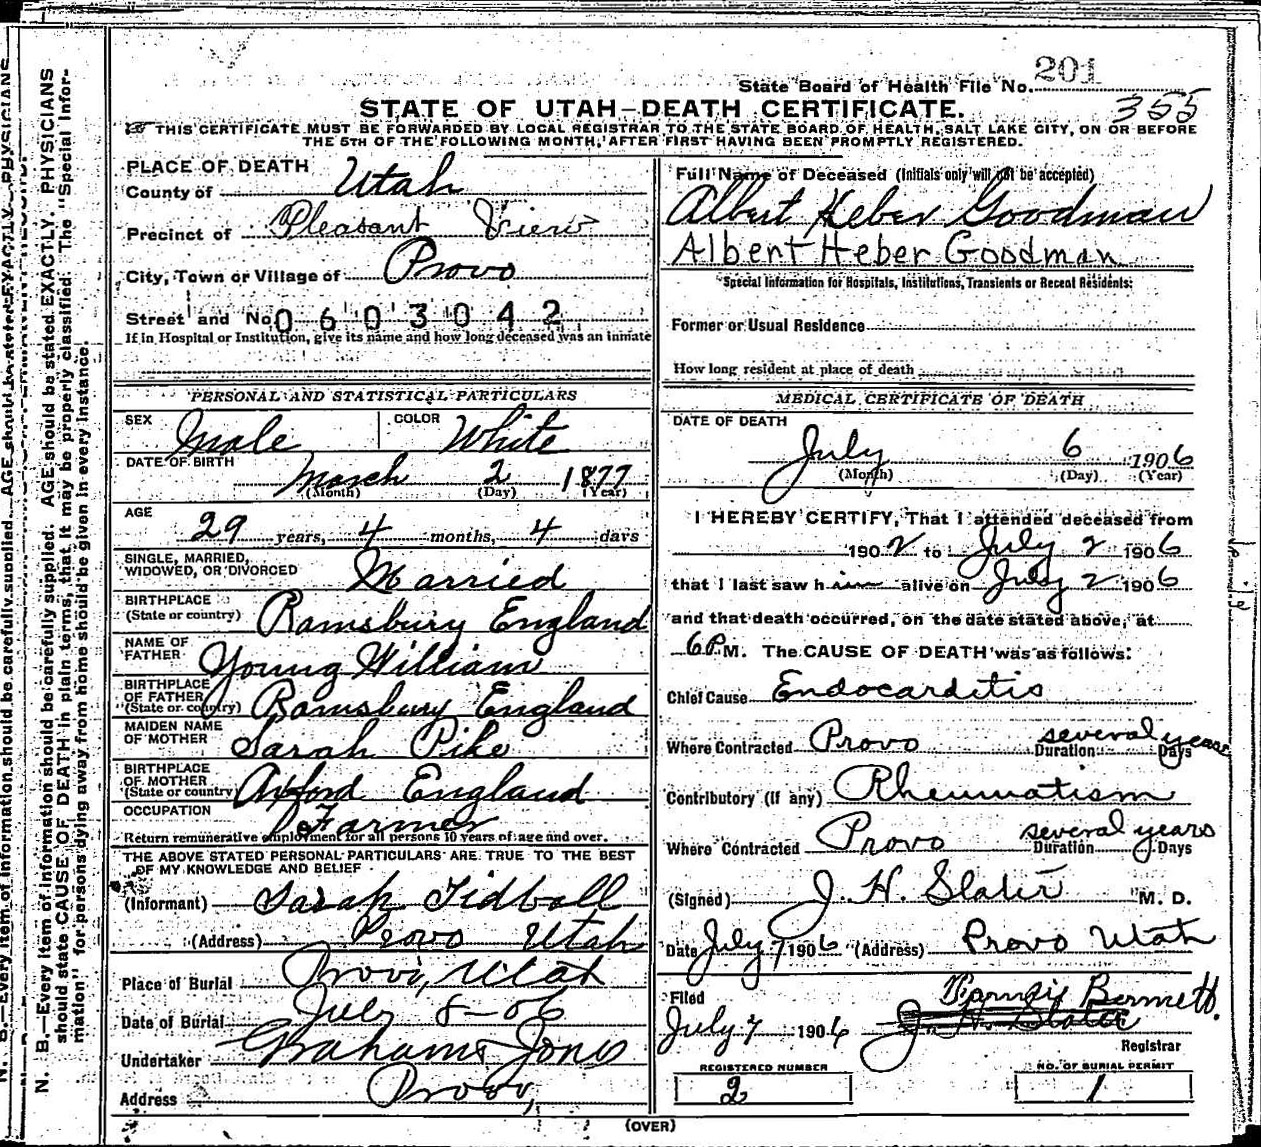 201
State Board of Health File No.
355
STATE OF UTAH—DEATH CERTIFICATE.
THIS CERTIFICATE MUST BE FORWARDED BY LOCAL REGISTRAR TO THE STATE BOARD OF HEALTH, SALT LAKE CITY, ON OR BEFORE
THE 5TH OF THE FOLLOWING MONTH, AFTER FIRST HAVING BEEN PROMPTLY REGISTERED.
PLACE OF DEATH
County of Utah
Precinct of Pleasant View
City, Town or Village of Provo
Street and No. 0603042
If in Hospital or Institution, give its name and how long deceased was an inmate
PERSONAL AND STATISTICAL PARTICULARS
SEX Male COLOR White
DATE OF BIRTH
March 2 1877
(Month) (Day) (Year)
AGE
29 years, 4 months, 4 days
SINGLE, MARRIED,
WIDOWED, OR DIVORCED Married
BIRTHPLACE
(State or country) Ramsbury England
NAME OF
FATHER Young William
BIRTHPLACE
OF FATHER
(State or country) Ramsbury England
MAIDEN NAME
OF MOTHER Sarah Pike
BIRTHPLACE
OF MOTHER
(State or country) Axford England
OCCUPATION Farmer
Return remunerative employment for all persons 10 years of age and over.
THE ABOVE STATED PERSONAL PARTICULARS ARE TRUE TO THE BEST
OF MY KNOWLEDGE AND BELIEF
(Informant) Sarah Tidball
(Address) Provo Utah
Place of Burial Provo, Utah
Date of Burial July 8-06
Undertaker Graham Jones
Address Provo,
Full Name of Deceased (Initials only will not be accepted)
Albert Heber Goodman
Albert Heber Goodman
Special Information for Hospitals, Institutions, Transients or Recent Residents:
Former or Usual Residence
How long resident at place of death
MEDICAL CERTIFICATE OF DEATH
DATE OF DEATH
July 6 1906
(Month) (Day) (Year)
I HEREBY CERTIFY, That I attended deceased from
1902 to July 2 1906
that I last saw him alive on July 2 1906
and that death occurred, on the date stated above, at
6 P.M. The CAUSE OF DEATH was as follows:
Chief Cause Endocarditis
Where Contracted Provo Duration several years Days
Contributory (if any) Rheumatism
Where Contracted Provo Duration several years Days
(Signed) J. H. Slater M. D.
Date July 7 1906 (Address) Provo Utah
Filed Bennett.
July 7 1906 J. H. Slater
Registrar
REGISTERED NUMBER
2
NO. OF BURIAL PERMIT
1
(OVER)
N. B.—Every item of information should be carefully supplied. AGE should be stated EXACTLY. PHYSICIANS
should state CAUSE OF DEATH in plain terms, that it may be properly classified. The "Special Infor-
mation" for persons dying away from home should be given in every instance.
N. B.—Every item of information should be carefully supplied. AGE should be stated EXACTLY. PHYSICIANS